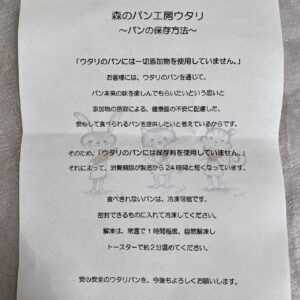 森のパン工房ウタリ
～パンの保存方法～
「ウタリのパンには一切添加物を使用していません。」
お客様には、ウタリのパンを通じて、
パン本来の味を楽しんでもらいたいという思いと
添加物の摂取による、健康面の不安に配慮した、
安心して食べられるパンを提供したいと考えているからです。
そのため、「ウタリのパンには保存料を使用していません。」
それによって、消費期限が製造から24時間と短くなっています。
食べきれないパンは、冷凍可能です。
密封できるものに入れて冷凍してください。
解凍は、常温で1時間程度、自然解凍し
トースターで約2分温めてください。
安心安全のウタリパンを、今後もよろしくお願いします。